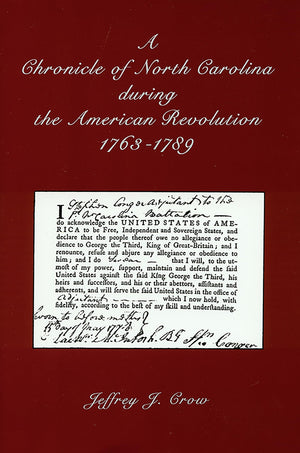 A
Chronicle of North Carolina
during
the American Revolution
1763-1789
I Stephen Conger adjutant to the
do acknowledge the UNITED STATES of AME-
RICA to be Free, Independent and Sovereign States, and
declare that the people thereof owe no allegiance or obe-
dience to George the Third, King of Great-Britain; and I
renounce, refuse and abjure any allegiance or obedience to
him; and I do that I will, to the ut-
most of my power, support, maintain and defend the said
United States against the said King George the Third, his
heirs and successors, and his or their abettors, assistants and
adherents, and will serve the said United States in the office of
Adjutant which I now hold, with
fidelity, according to the best of my skill and understanding.
Sworn to before me this
Jeffrey J. Crow